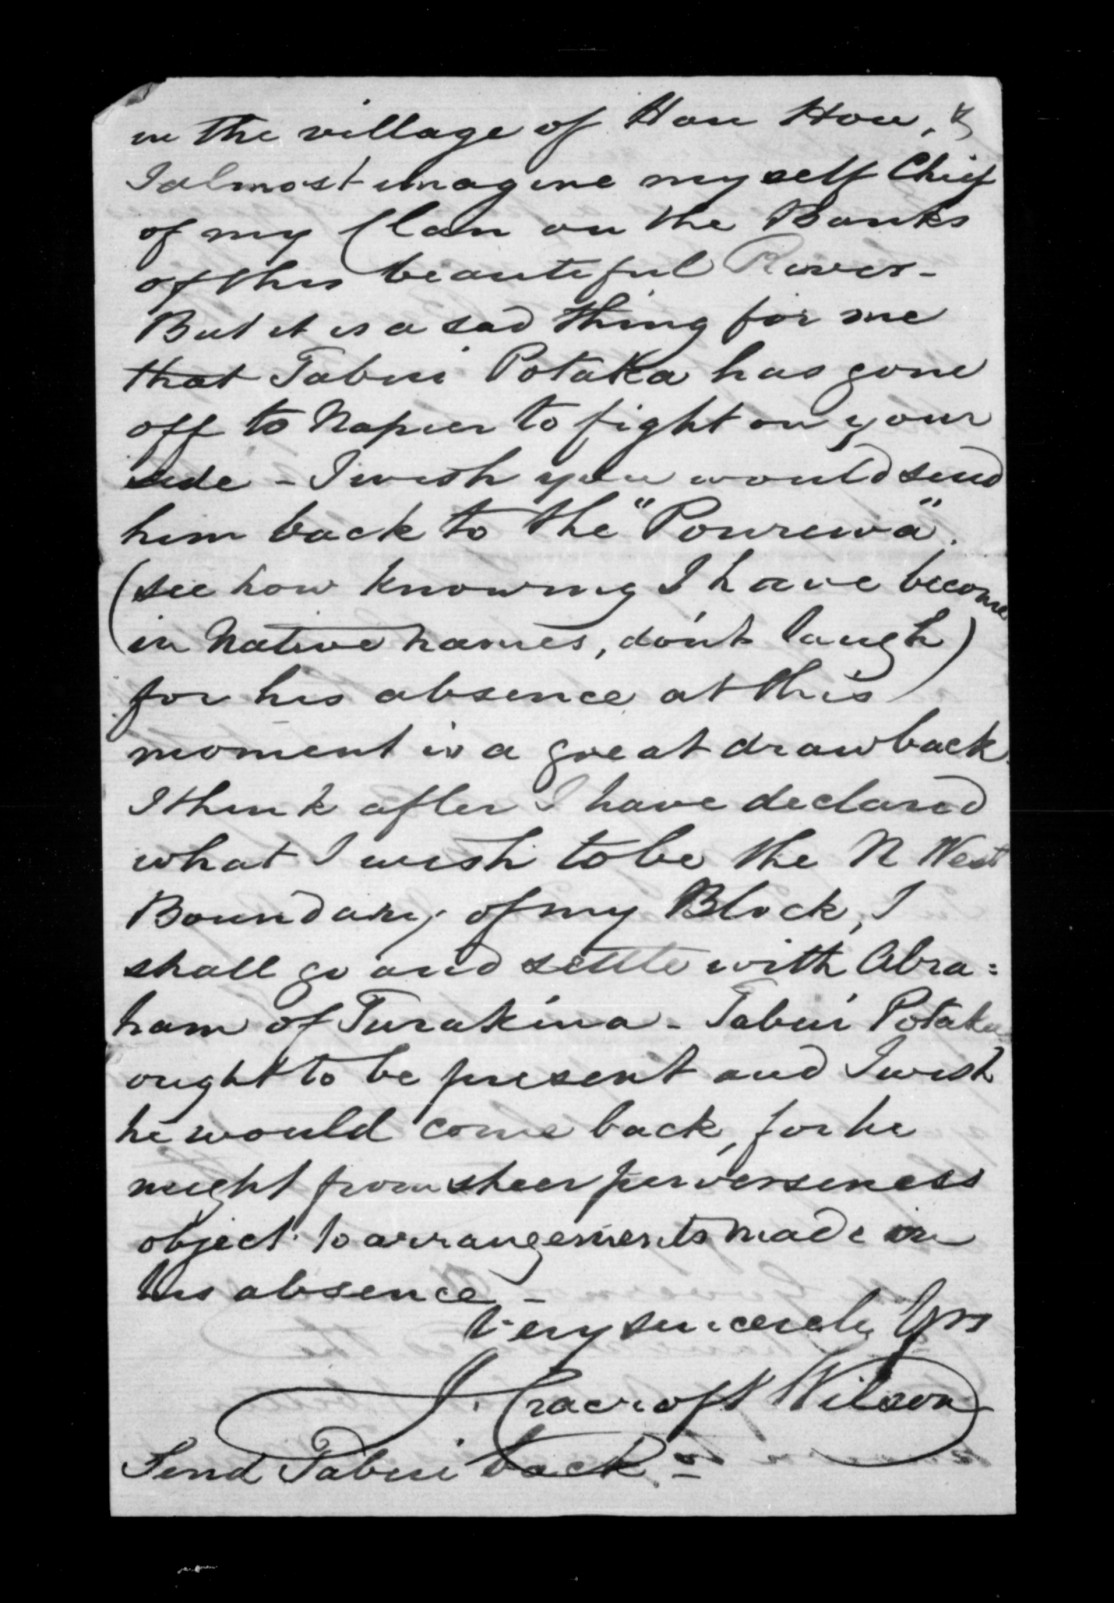 in the village of Hau Hou, &
I almost imagine myself Chief
of my Clan on the Banks
of this beautiful River -
But it is a sad thing for me
that Tabui Potaka has gone
off to Napier to fight on your
side - I wish you would send
him back to the "Pourewa".
(see how knowing I have become
in Native names, don't laugh)
for his absence at this
moment is a great drawback.
I think after I have declared
what I wish to be the N West
Boundary of my Block, I
shall go and settle with Abra=
ham of Turakina - Tabui Potaka
ought to be present and I wish
he would come back, for he
might from sheer perverseness
object to arrangements made in
his absence -
Very sincerely Yrs
J. Cracroft Wilson
Send Tabui back =